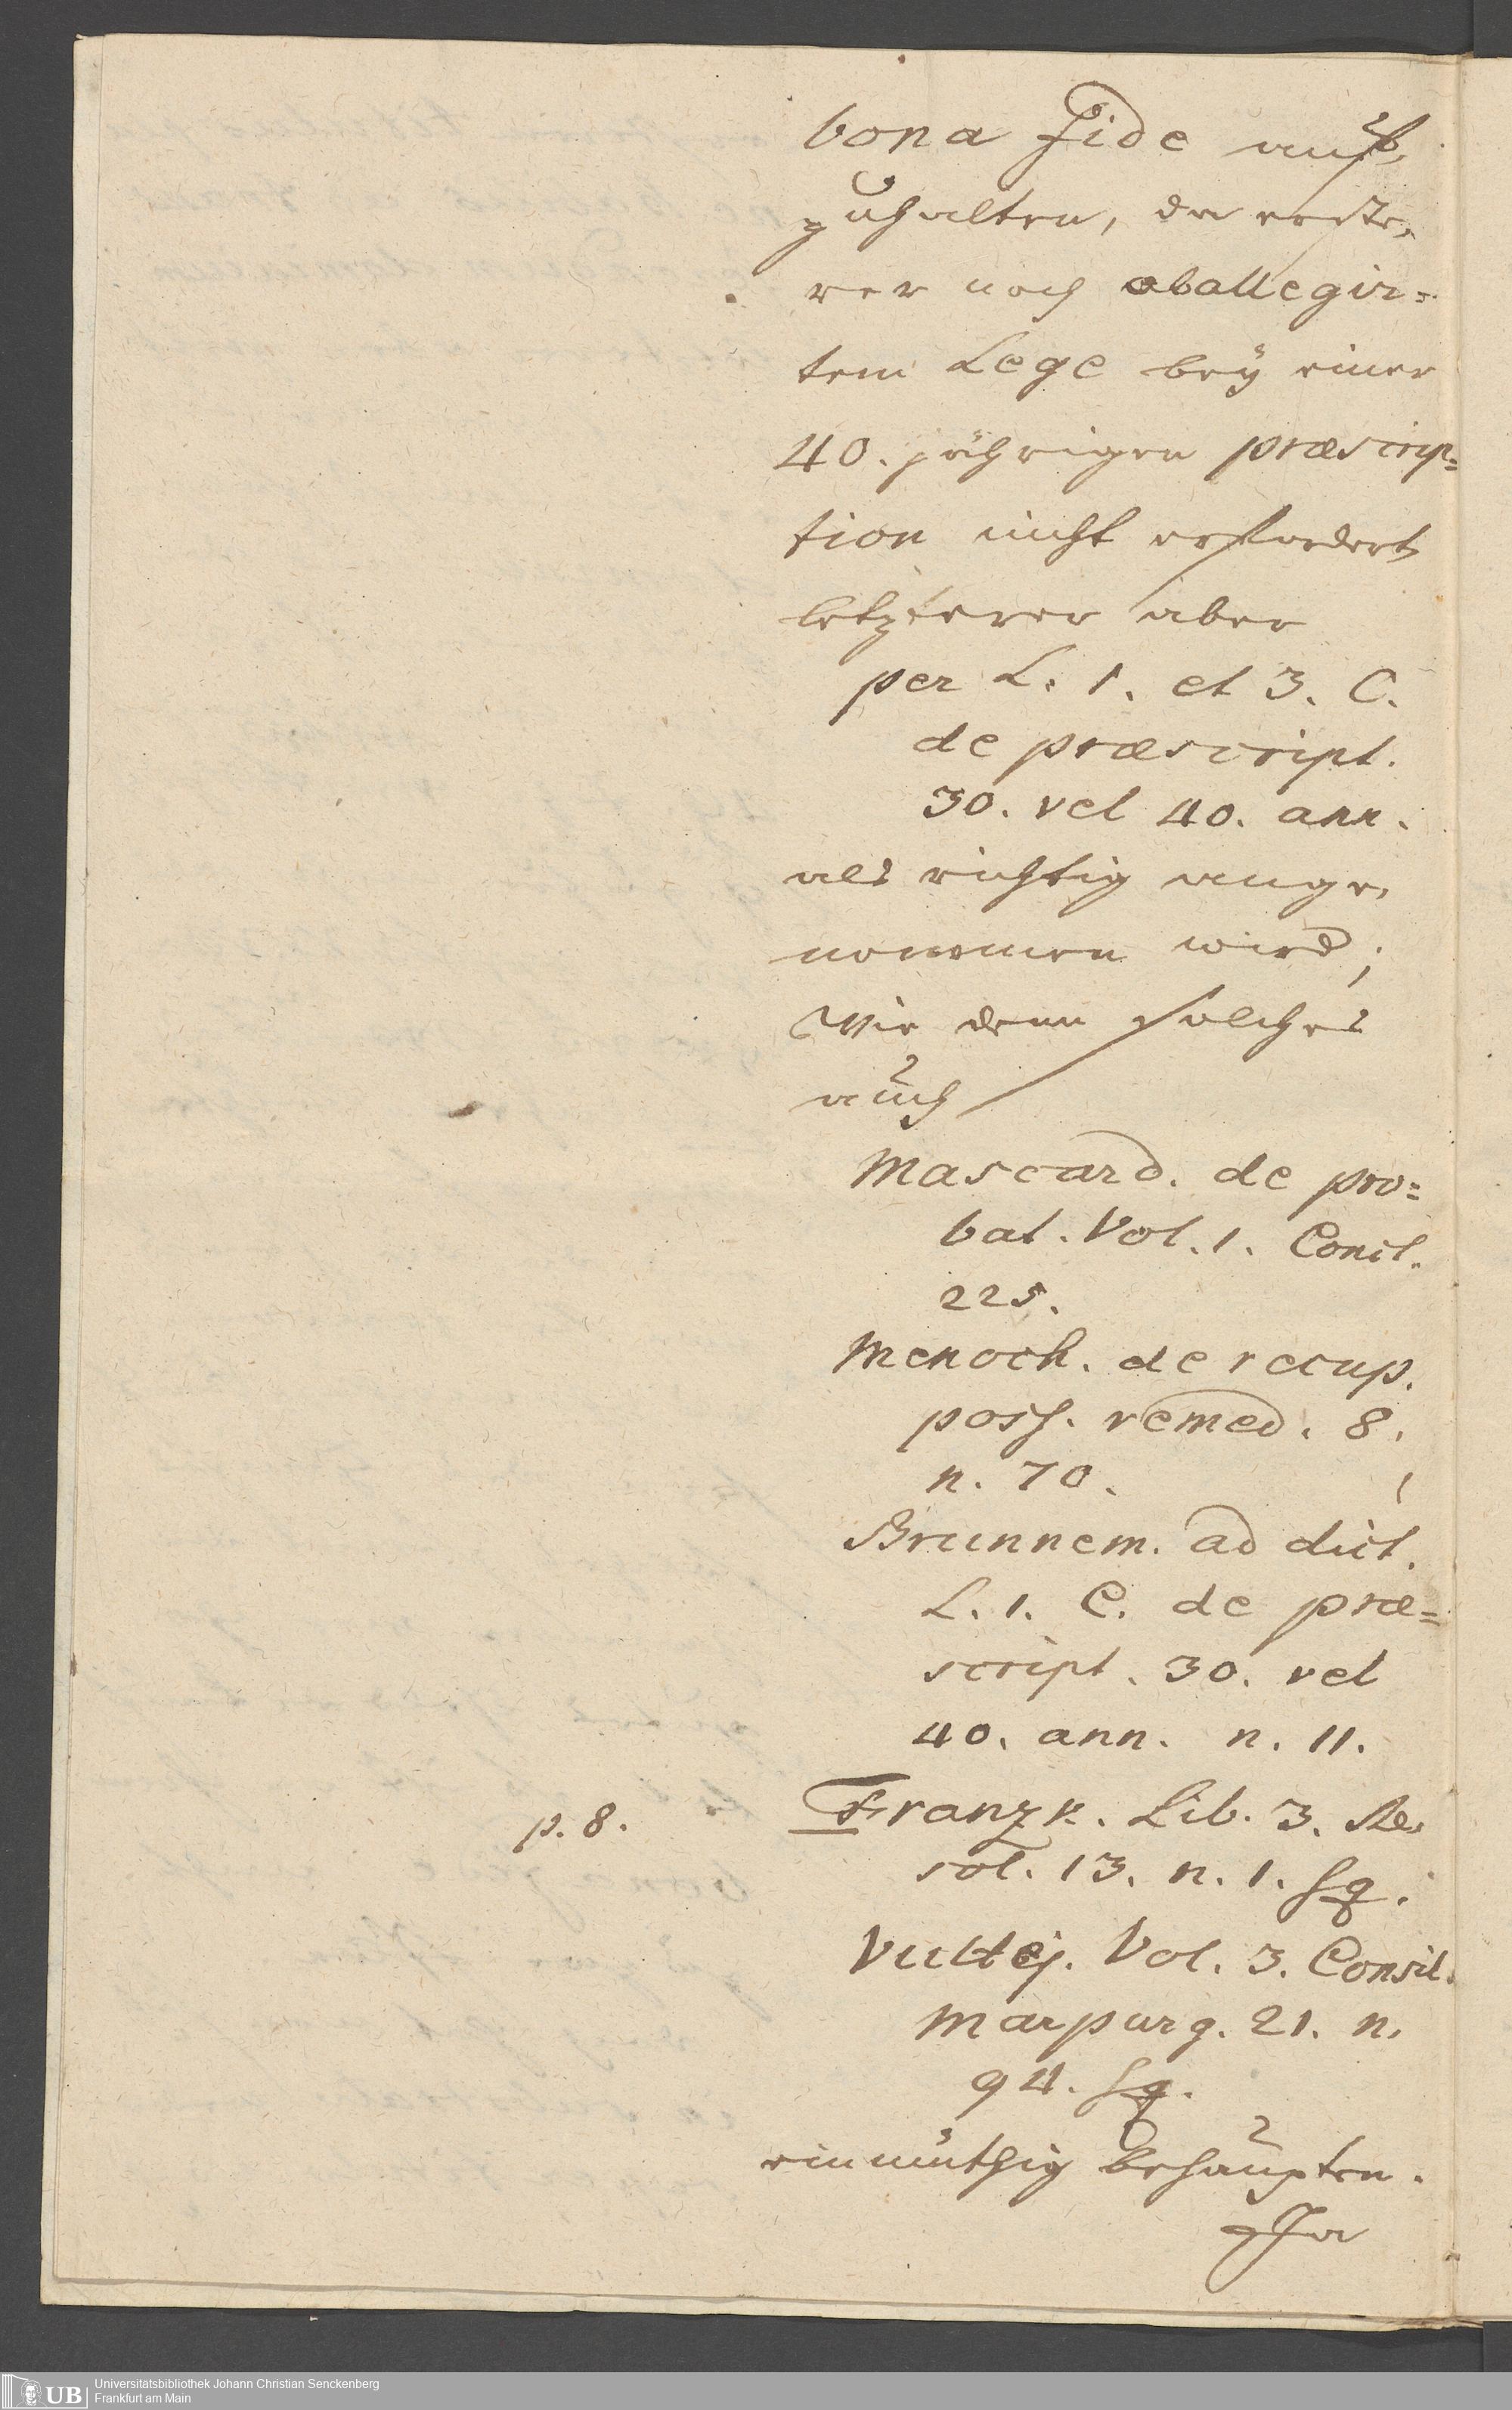 bona Fide auf,
zuhalten, da erste,
rer nach aballegir=
tem Lege beÿ einer
40. jährigen præscrip=
tion nicht erfordert
letzterer aber
per L. 1. et 3. C.
de præscript.
30. vel 40. ann.
als richtig ange,
nommen wird;
Wie denn solches
auch
Mascard. de pro=
bat. Vol. 1. Concl.
225.
Menoch. de recup.
poss. remed. 8.
n. 70.
Brunnem. ad dict.
L. 1. C. de præ=
script. 30. vel
40. ann. n. 11.
p. 8.
Franzk. Lib. 3. Re,
sol. 13. n. 1. sq.
Vultej. Vol. 3. Consil.
Marpurg. 21. n.
94. sq.
einmüthig behaupten.
Ja
UB
Universitätsbibliothek Johann Christian Senckenberg
Frankfurt am Main